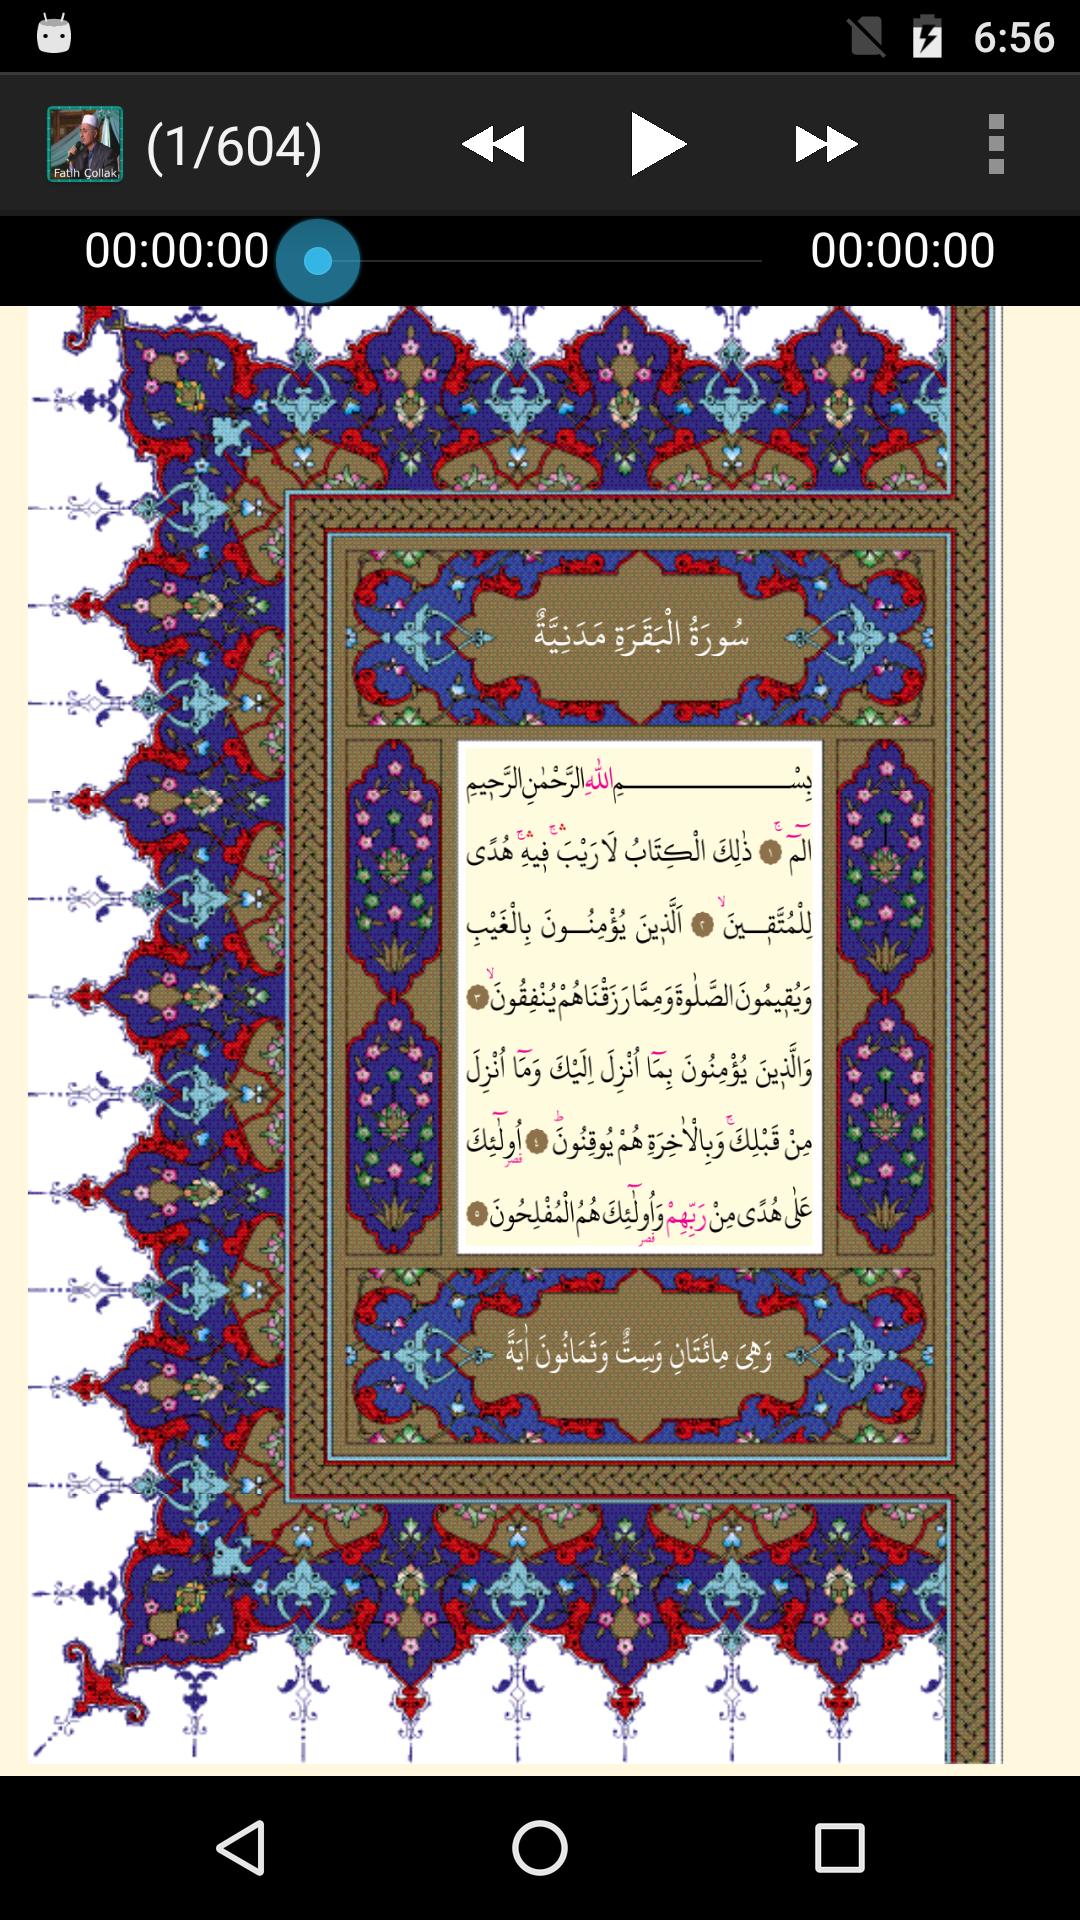 6:56
Fatih Çollak
(1/604)
00:00:00
00:00:00
سُورَةُ الْبَقَرَةِ مَدَنِيَّةٌ
بِسْمِ اللّٰهِ الرَّحْمٰنِ الرَّحٖيمِ
الٓمٓ ۚ ﴿١﴾ ذٰلِكَ الْكِتَابُ لَا رَيْبَ ۛۚ فٖيهِ ۛۚ هُدًى
لِلْمُتَّقٖينَ ۙ ﴿٢﴾ اَلَّذٖينَ يُؤْمِنُونَ بِالْغَيْبِ
وَيُقٖيمُونَ الصَّلٰوةَ وَمِمَّا رَزَقْنَاهُمْ يُنْفِقُونَ ۙ ﴿٣﴾
وَالَّذٖينَ يُؤْمِنُونَ بِمَٓا اُنْزِلَ اِلَيْكَ وَمَٓا اُنْزِلَ
مِنْ قَبْلِكَ ۚ وَبِالْاٰخِرَةِ هُمْ يُوقِنُونَ ؕ ﴿٤﴾ اُولٰٓئِكَ قصر
عَلٰى هُدًى مِنْ رَبِّهِمْ وَاُولٰٓئِكَ قصر هُمُ الْمُفْلِحُونَ ﴿٥﴾
وَهِيَ مِائَتَانِ وَسِتٌّ وَثَمَانُونَ اٰيَةً